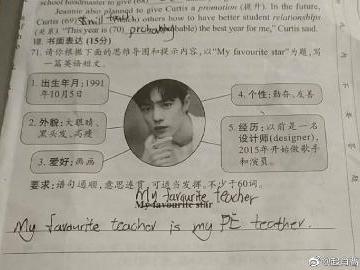 school headmaster to give (68)
Jeannie also planned to give Curtis a promotion (提升). In the future,
Curtis (69) will teach others how to have better student relationships
(关系). "This year is (70) probably (probable) the best year for me," Curtis said.
VIII. 书面表达 (15分)
71. 请你根据下面的思维导图和提示内容,以"My favourite star"为题,写
一篇英语短文。
1. 出生年月:1991
年10月5日
2. 外貌:大眼睛、
黑头发、高瘦
3. 爱好:画画
4. 个性:勤奋、友善
5. 经历:以前是一名
设计师(designer),
2015年开始做歌手
和演员。
要求:语句通顺,意思连贯,可适当发挥。不少于60词。
My favourite teacher
My favourite star
My favourite teacher is my PE teather.